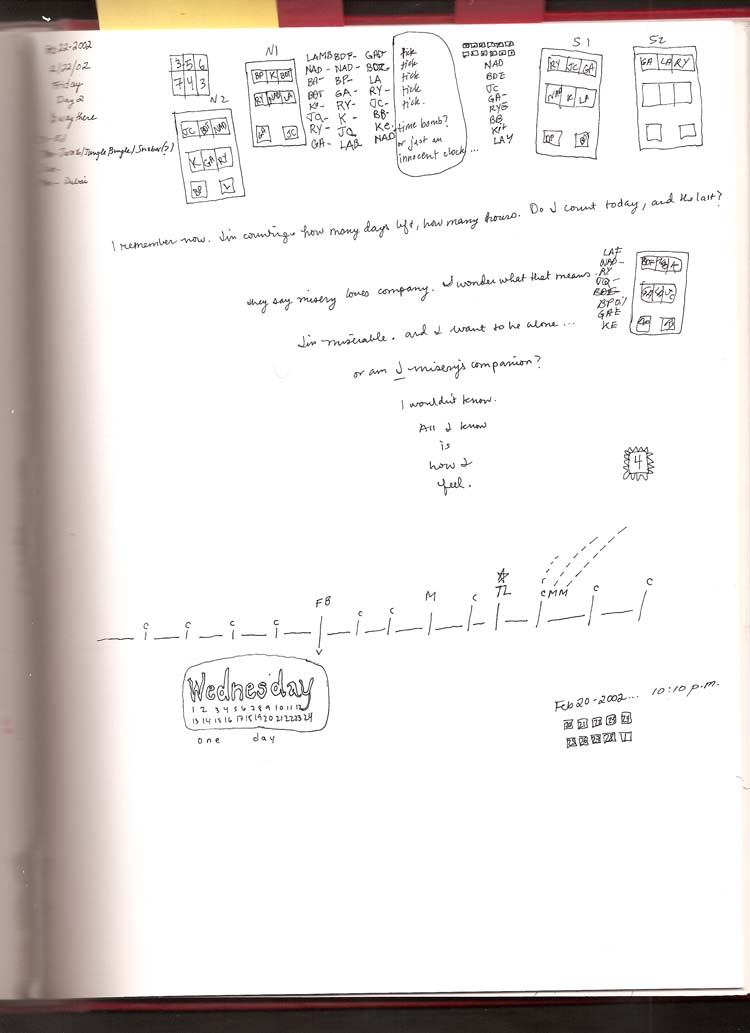 22-2002
2/22/02
Friday
Day 2
Dubai
3 5 6
7 4 3
N2
JC NAD
K GA RY
BP
N1
BP K BDF
RY NAD LA
GA JC
LAMB BDF- GAD
NAD- NAD- BDE
BA- BP- LA
BDT GA- RY-
RY- JC-
JQ- K- BB-
RY- JQ Ke
GA- LAB NAD
tick
tick
tick
tick
tick.
time bomb?
or just an
innocent clock...
NAD
BDE
JC
GA-
RYE
BB
LAY
S1
RY JC GA
NAD K LA
BP
S2
GA LA RY
I remember now. I'm counting how many days left, how many hours. Do I count today, and the last?
They say misery loves company. I wonder what that means.
I'm miserable. and I want to be alone...
or am I misery's companion?
I wouldn't know.
All I know
is
how I
feel.
LAF
NAD-
RY
JQ-
BDE
GAE
KE
4
C C C C FB C C M C TL C MM C C
Wednesday
1 2 3 4 5 6 7 8 9 10 11 12
13 14 15 16 17 18 19 20 21 22 23 24
one day
Feb 20-2002... 10:10 p.m.
20 21 22 23 24
25 26 27 28 1